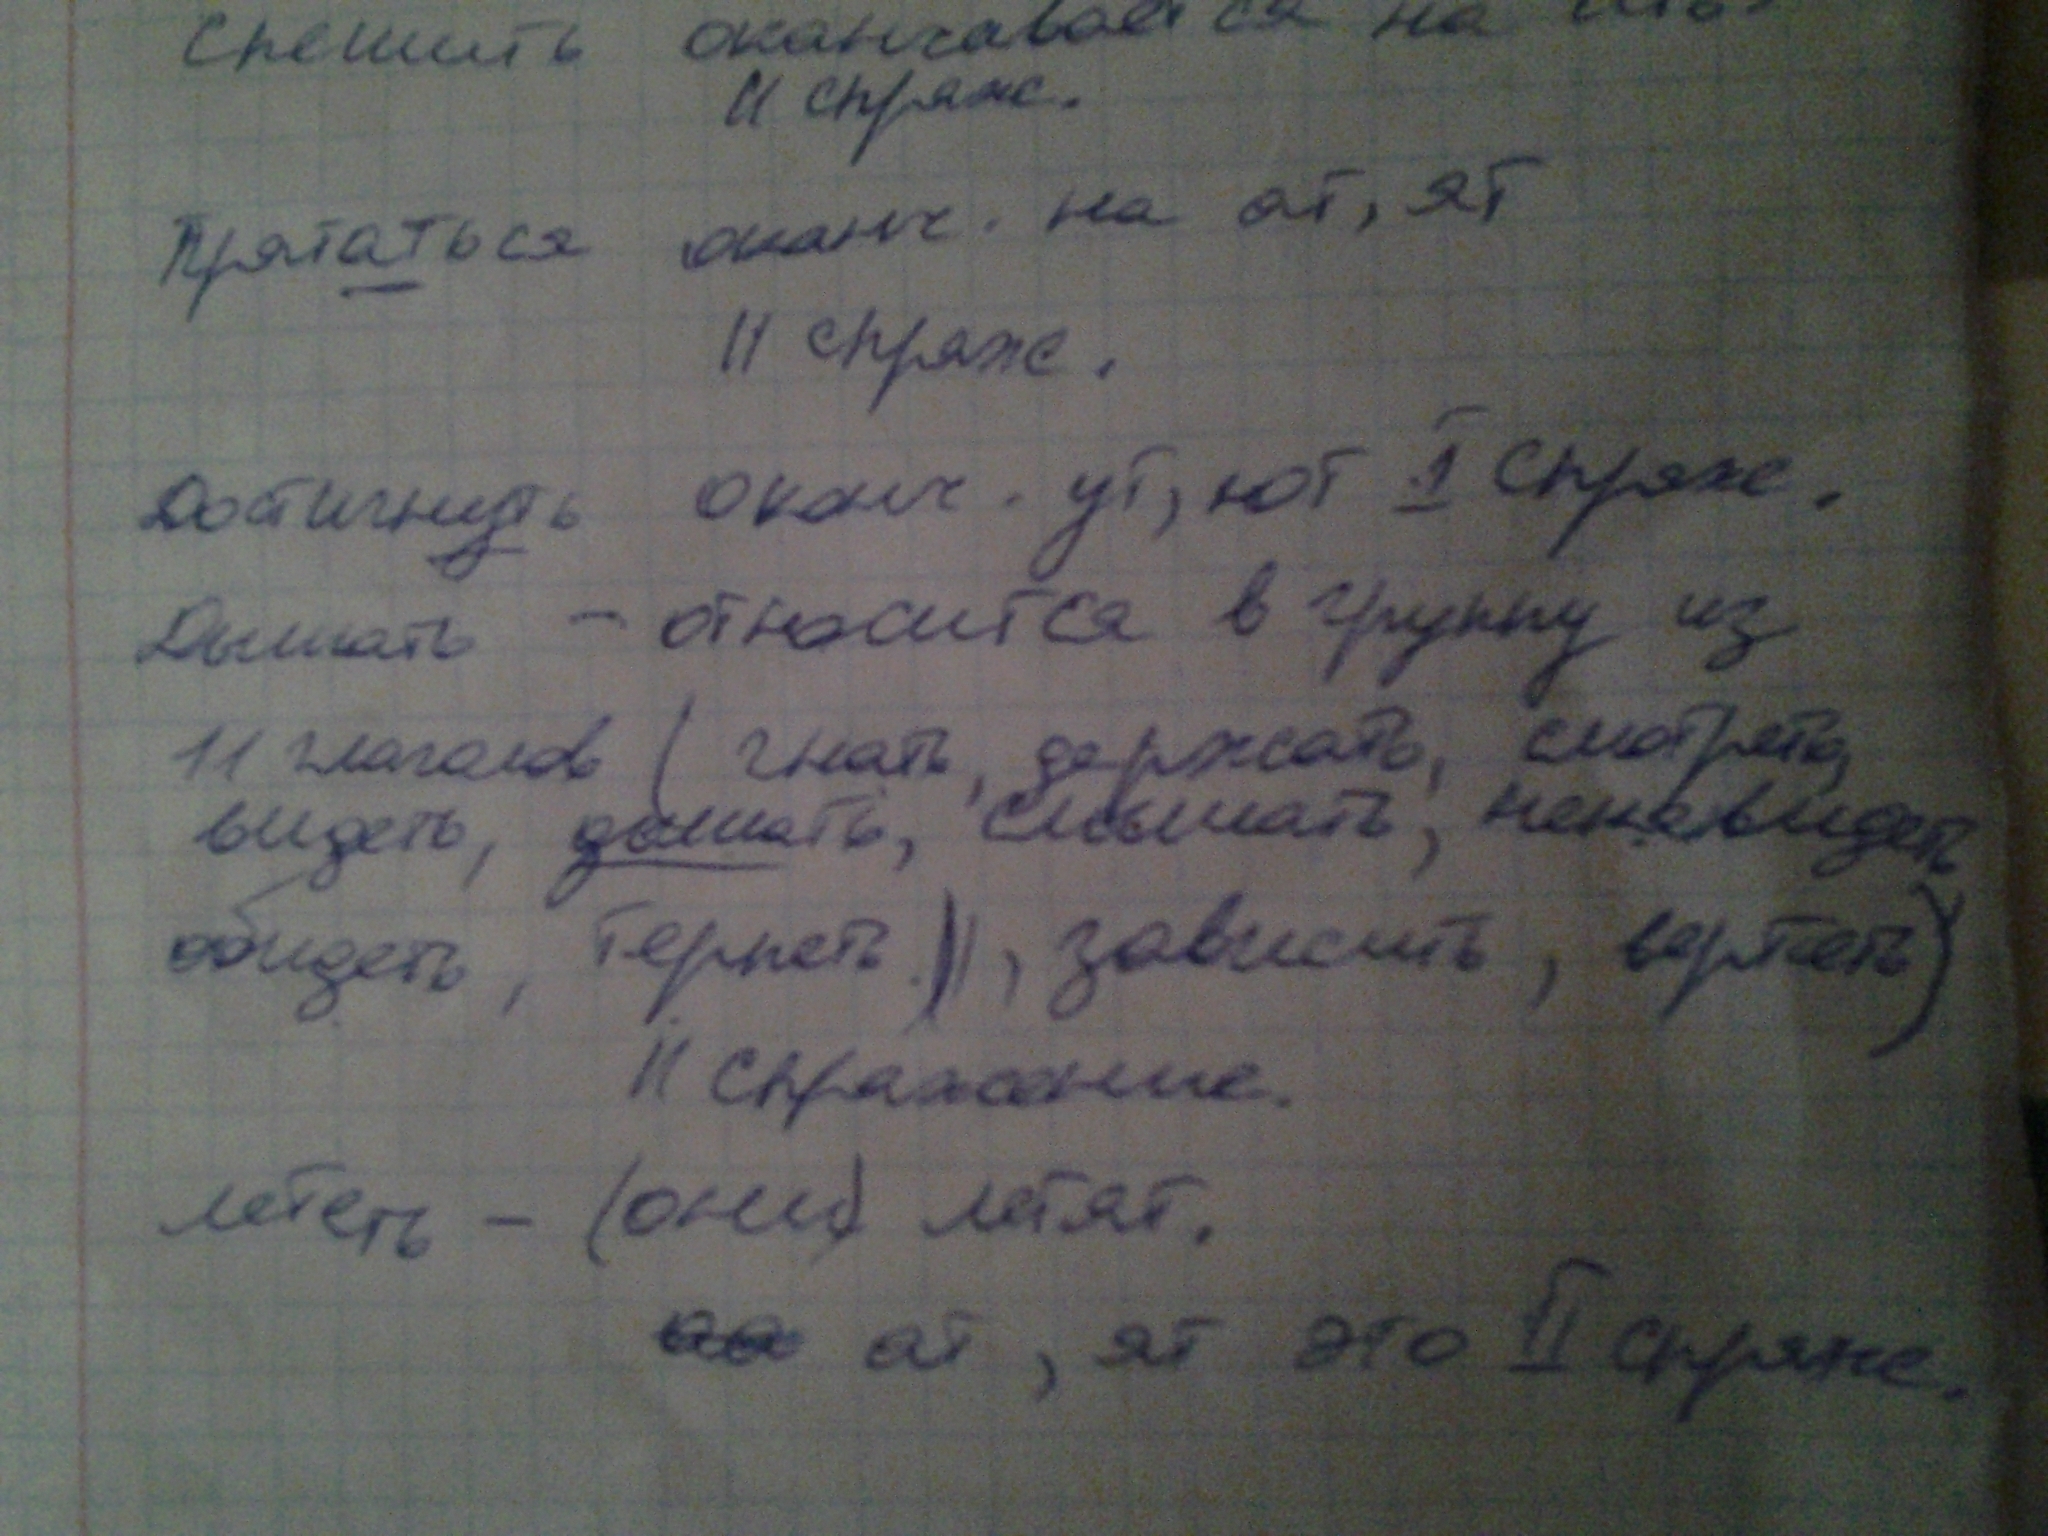 Спешить оканчивается на ить.
II спряж.
Прятаться оканч. на ат, ят
II спряж.
Достигнуть оканч. ут, ют I спряж.
Дышать - относится в группу из
11 глаголов (гнать, держать, смотреть,
видеть, дышать, слышать, ненавидеть
обидеть, терпеть, зависить, вертеть)
II спряжение.
лететь - (они) летят.
ат, ят это II спряж.